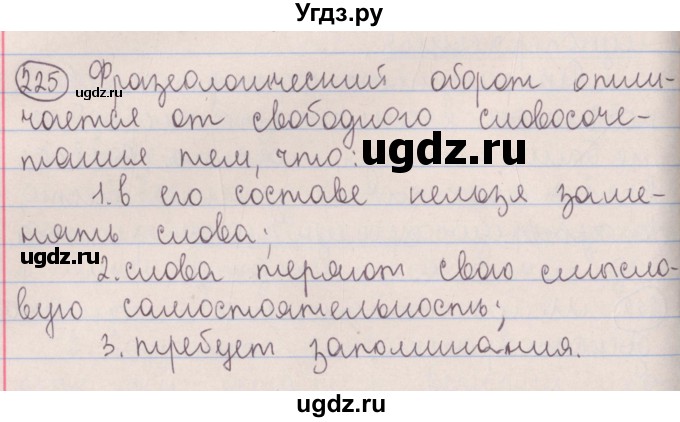 Угдз.ру
225 Фразеологический оборот отли-
ugdz.ru
чается от свободного словосоче-
ugdz.ru
тания тем, что:
1. в его составе нельзя заме-
нять слова;
ugdz.ru
2. слова теряют свою смысло-
вую самостоятельность;
3. требует запоминания.
ugdz.ru